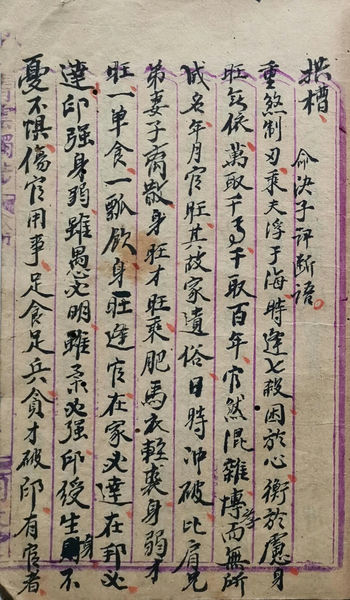 拱槽
命決子評断語
重煞制刃乘夫浮于海時逢七殺困於心衡於慮身
旺無依萬取千焉千取百年官然混雜博学而無所
成名年月官旺其故家遺俗日時冲破比肩兄
弟妻子离散身旺才旺乘肥馬衣輕裘身弱才
旺一单食一瓢飲身旺逢官在家必達在邦必
達印强身弱雖愚必明雖柔必强印綬生身不
憂不惧傷官用事足食足兵貪才破印有官者